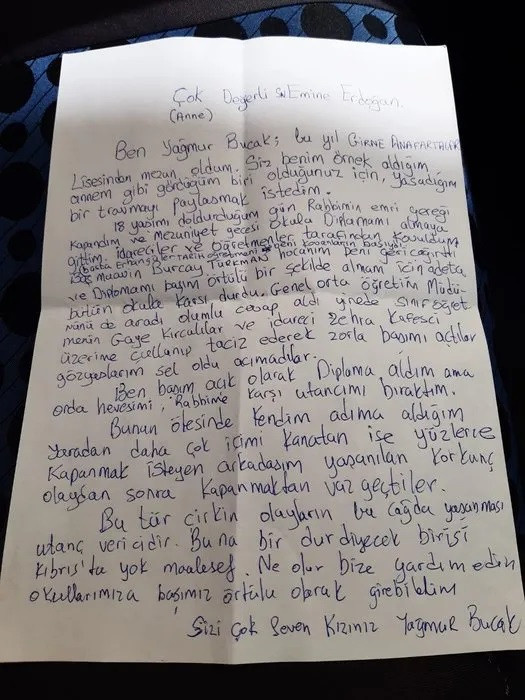 Çok Değerli Sn Emine Erdoğan.
(Anne)
Ben Yağmur Bucak; bu yıl GİRNE ANAFARTALAR
Lisesinden mezun oldum. Siz benim örnek aldığım
annem gibi gördüğüm biri olduğunuz için, yaşadığım
bir travmayı paylaşmak istedim.
18 yaşımı doldurduğum gün Rabbimin emri gereği
Kapandım ve Mezuniyet gecesi Okula Diplamamı almaya
gittim. İdareciler ve öğretmenler tarafından Kovuldum
başta Erhan tarih öğretmeni beni kovanların başıydı.
Baş muavin Burcay TÜRKMAN hocanım beni geri çağırttı
ve Diplomamı başım örtülü bir şekilde almam için adeta
bütün okula karşı durdu. Genel orta öğretim Müdü-
rünü de aradı olumlu cevap aldı yinede sınıf öğret
menin Gaye Kırcalılar ve idareci Zehra Kafesci
üzerime çullanıp taciz ederek zorla başımı açtılar
gözyaşlarım sel oldu acımadılar.
Ben başım açık olarak Diploma aldım ama
orda hevesimi, Rabbime karşı utancımı bıraktım.
Bunun ötesinde kendim adıma aldığım
yaradan daha çok içimi kanatan ise yüzlerce
Kapanmak isteyen arkadaşım yaşanılan korkunç
olaydan sonra kapanmaktan vaz geçtiler.
Bu tür çirkin olayların bu çağda yaşanması
utanç vericidir. Buna bir dur diyecek birisi
Kıbrıs'ta yok maalesef. Ne olur bize yardım edin
okullarımıza başımız örtülü olarak girebilelim
Sizi çok seven Kızınız Yağmur Bucak